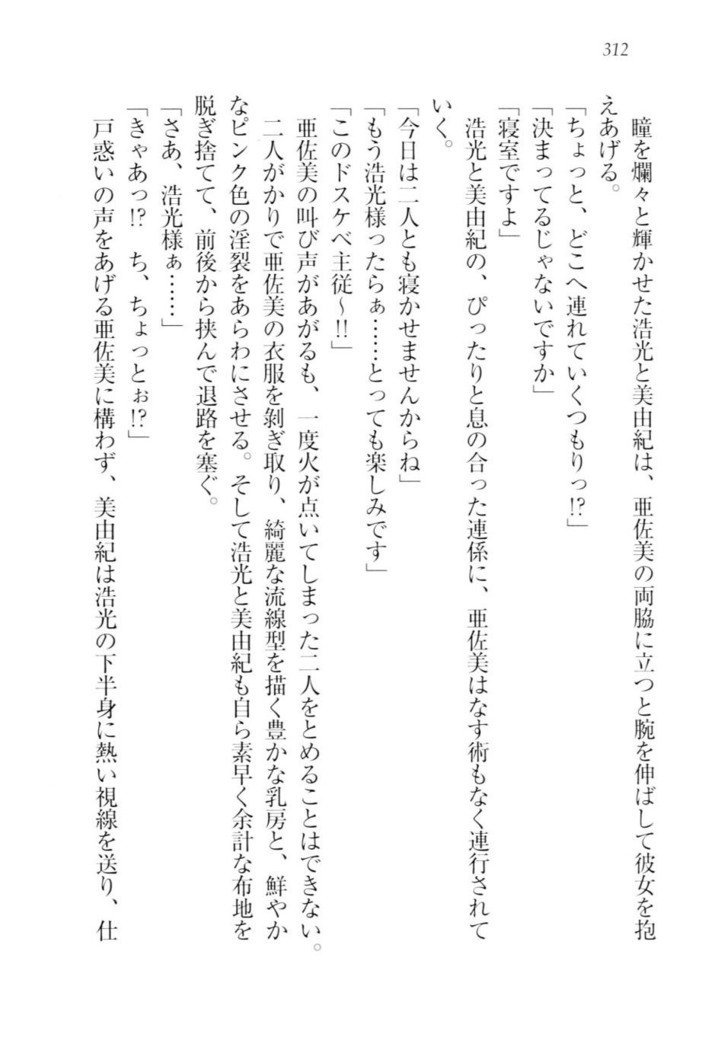 312
瞳を爛々と輝かせた浩光と美由紀は、亜佐美の両脇に立つと腕を伸ばして彼女を抱
えあげる。
「ちょっと、どこへ連れていくつもりっ!?」
「決まってるじゃないですか」
「寝室ですよ」
浩光と美由紀の、ぴったりと息の合った連係に、亜佐美はなす術もなく連行されて
いく。
「今日は二人とも寝かせませんからね」
「もう浩光様ったらぁ……とっても楽しみです」
「このドスケベ主従～!!」
亜佐美の叫び声があがるも、一度火が点いてしまった二人をとめることはできない。
二人がかりで亜佐美の衣服を剝ぎ取り、綺麗な流線型を描く豊かな乳房と、鮮やか
なピンク色の淫裂をあらわにさせる。そして浩光と美由紀も自ら素早く余計な布地を
脱ぎ捨てて、前後から挟んで退路を塞ぐ。
「さあ、浩光様ぁ……」
「きゃあっ!?　ち、ちょっとぉ!?」
戸惑いの声をあげる亜佐美に構わず、美由紀は浩光の下半身に熱い視線を送り、仕